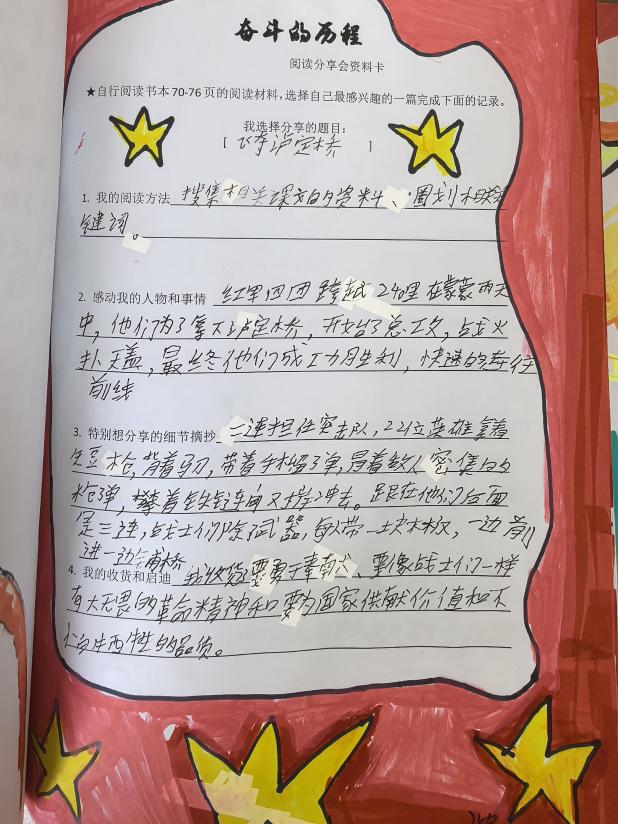 奋斗的历程
阅读分享会资料卡
★自行阅读书本70-76页的阅读材料，选择自己最感兴趣的一篇完成下面的记录。
我选择分享的题目：
[ 飞夺泸定桥 ]
1. 我的阅读方法 搜集相关课文的资料、圈划相关
键词。
2. 感动我的人物和事情 红军四团跨越240里在蒙蒙雨天
中，他们为了拿下泸定桥，开始了总攻，战火
扑天盖，最终他们成功胜利，快速的奔往
前线
3. 特别想分享的细节摘抄 二连担任突击队，22位英雄拿着
短枪，背着马刀，带着手榴弹，冒着敌人密集的
枪弹，攀着铁链向对岸冲去。跟在他们后面
是三连，战士们除武器，每人带一块木板，一边前
进一边铺桥
4. 我的收货和启迪 我收货要勇于奉献、要像战士们一样
有大无畏的革命精神和要为国家供献价值和不
怕牺牲的品质。